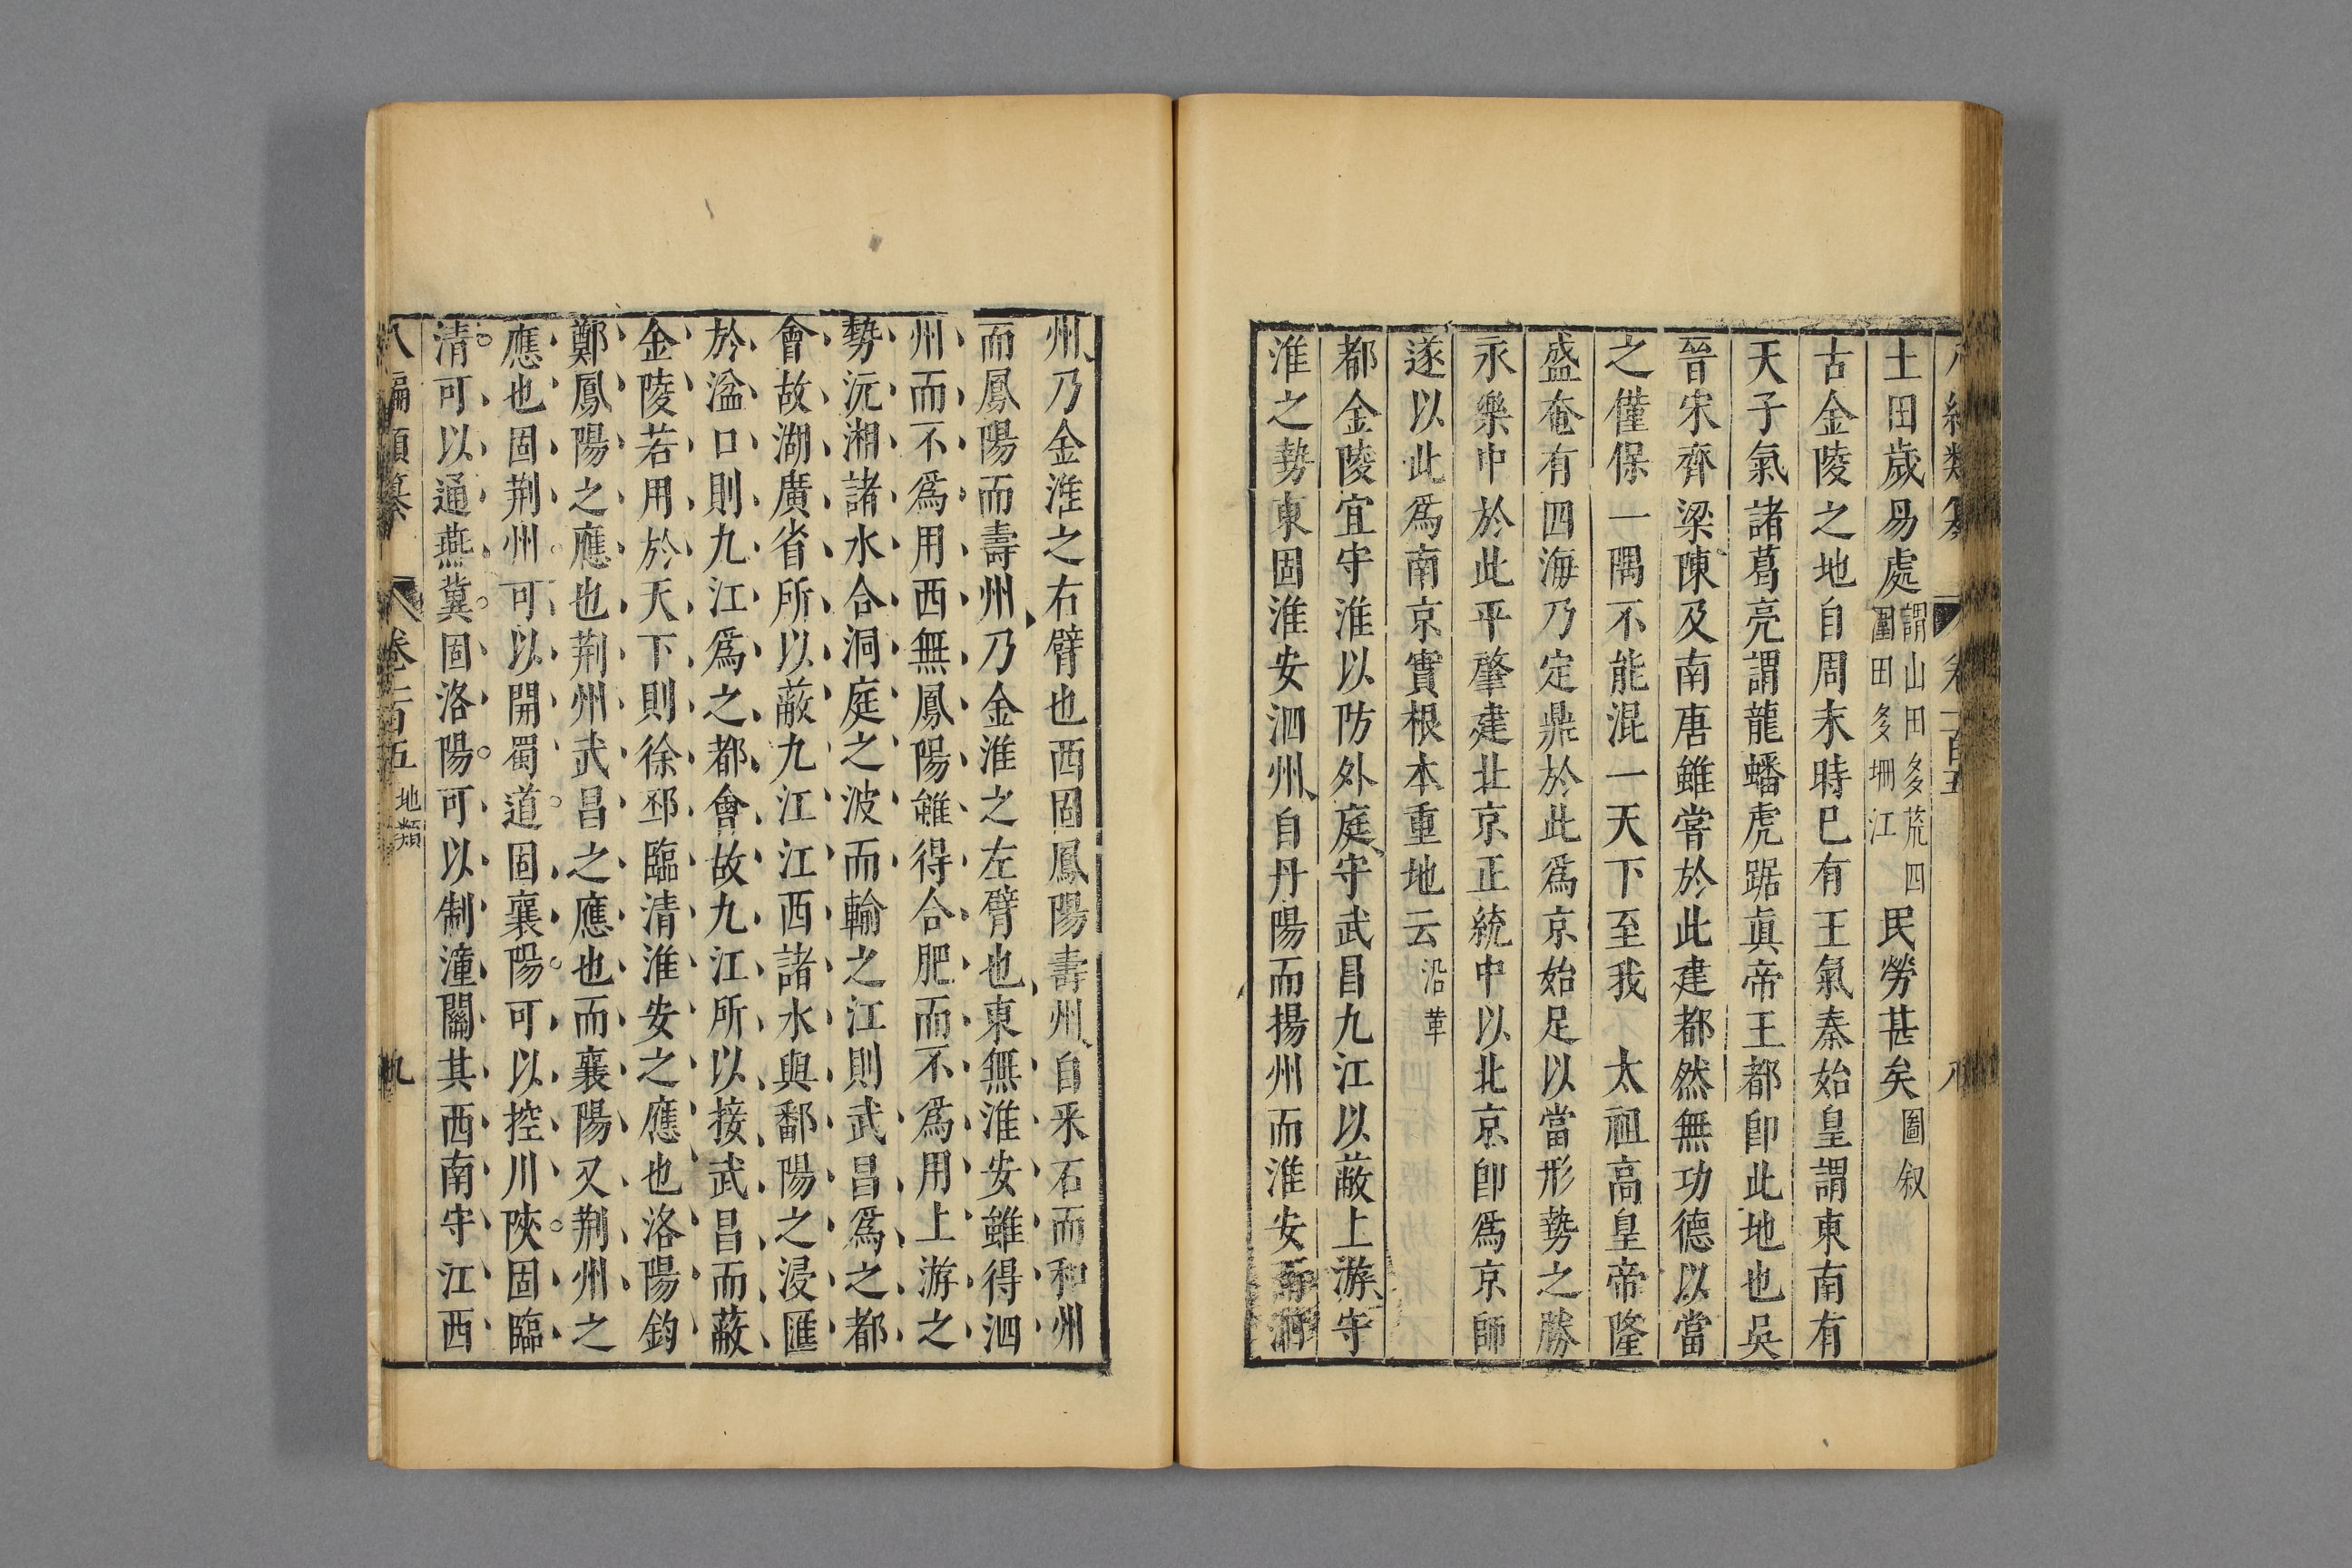 土田歲易處謂山田多荒四圍田多坍江民勞甚矣圖叙
古金陵之地自周末時巳有王氣秦始皇謂東南有
天子氣諸葛亮謂龍蟠虎踞眞帝王都卽此地也吳
晉宋齊梁陳及南唐雖嘗於此建都然無功德以當
之僅保一隅不能混一天下至我太祖高皇帝隆
盛奄有四海乃定鼎於此爲京始足以當形勢之勝
永樂中於此平肇建北京正統中以北京卽爲京師
遂以此爲南京實根本重地云沿革
都金陵宜守淮以防外庭守武昌九江以蔽上游守
淮之勢東固淮安泗州自丹陽而揚州而淮安而泗
州乃金淮之右臂也西固鳳陽壽州自釆石而和州
而鳳陽而壽州乃金淮之左臂也東無淮安雖得泗
州而不爲用西無鳳陽雖得合肥而不爲用上游之
勢沅湘諸水合洞庭之波而輸之江則武昌爲之都
會故湖廣省所以蔽九江江西諸水與鄱陽之浸匯
於湓口則九江爲之都會故九江所以接武昌而蔽
金陵若用於天下則徐邳臨清淮安之應也洛陽鈞
鄭鳳陽之應也荊州武昌之應也而襄陽又荊州之
應也固荊州可以開蜀道固襄陽可以控川陝固臨
清可以通燕冀固洛陽可以制潼關其西南守江西
八編類纂 卷一百五 地類 九